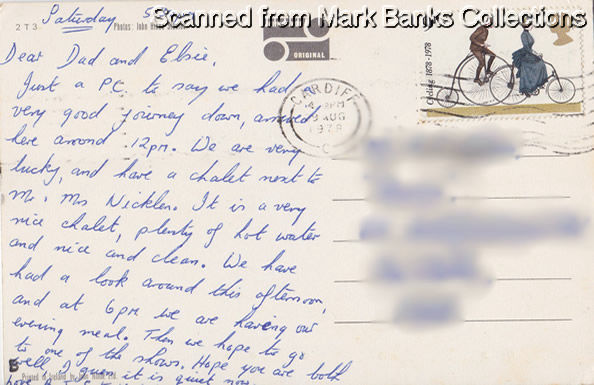 Scanned from Mark Banks Collections
Saturday
2 T 3
Photos: John
ORIGINAL
Cycling 1878-1978
CARDIFF
PM
AUG
1978
C
Dear Dad and Elsie,
Just a P.C. to say we had a
very good journey down, arrived
here around 12pm. We are very
lucky, and have a chalet next to
Mr. Mrs Nickler. It is a very
nice chalet, plenty of hot water
and nice and clean. We have
had a look around this afternoon,
and at 6pm we are having our
evening meal. Then we hope to go
to one of the shows. Hope you are both
well I guess it is quiet now
Printed in Ireland by John Hinde Ltd.